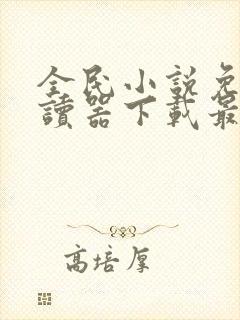 全民小説免
讀器下載最
高培厚